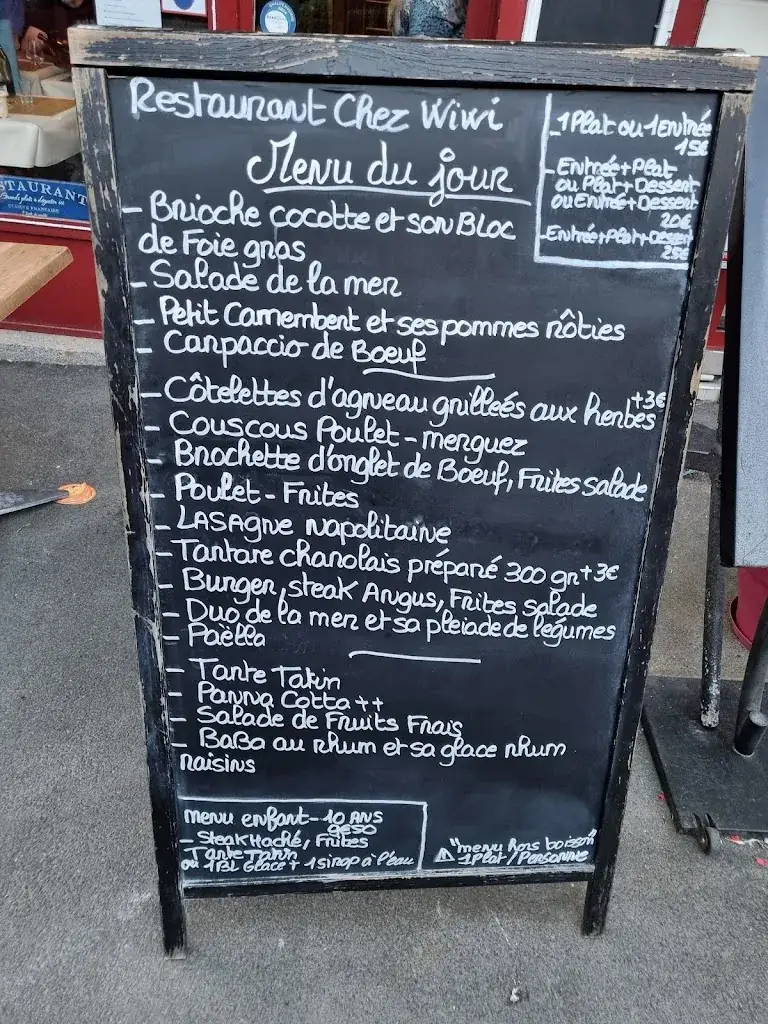 Restaurant Chez Wiwi
Menu du jour
- 1 Plat ou 1 entrée
15€
- Entrée + Plat
ou Plat + Dessert
ou Entrée + Dessert
20€
- Entrée + Plat + Dessert
25€
- Brioche cocotte et son Bloc
de Foie gras
- Salade de la mer
- Petit Camembert et ses pommes rôties
- Carpaccio de Boeuf
- Côtelettes d'agneau grilleés aux herbes +3€
- Couscous Poulet - merguez
- Brochette d'onglet de Boeuf, Frites salade
- Poulet - Frites
- LASAgne napolitaine
- Tartare charolais préparé 300 gr +3€
- Burger, steak Angus, Frites salade
- Duo de la mer et sa pleiade de légumes
- Paëlla
- Tarte Tatin
- Panna Cotta ++
- Salade de Fruits Frais
- BaBa au rhum et sa glace rhum
raisins
menu enfant - 10 ANS
9€50
- Steak Haché, Frites
Tarte Tatin
ou 1 BL Glace + 1 sirop à l'eau
⚠ "menu hors boisson"
1 Plat / Personne
STAURANT